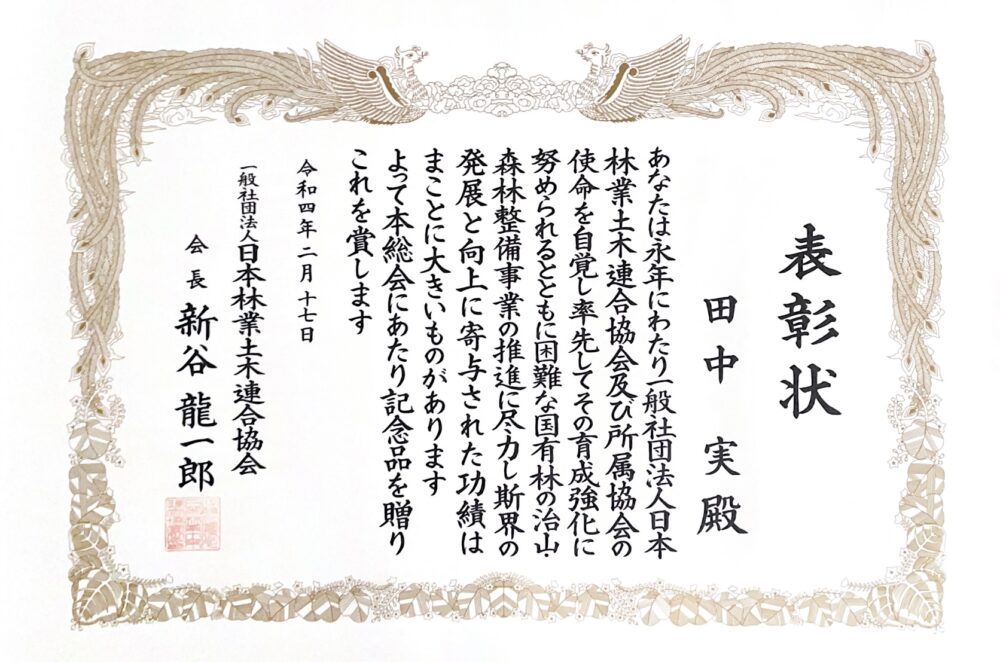 表彰状
田中 実 殿
あなたは永年にわたり一般社団法人日本
林業土木連合協会及び所属協会の
使命を自覚し率先してその育成強化に
努められるとともに困難な国有林の治山・
森林整備事業の推進に尽力し斯界の
発展と向上に寄与された功績は
まことに大きいものがあります
よって本総会にあたり記念品を贈り
これを賞します
令和四年二月十七日
一般社団法人日本林業土木連合協会
会長 新谷龍一郎